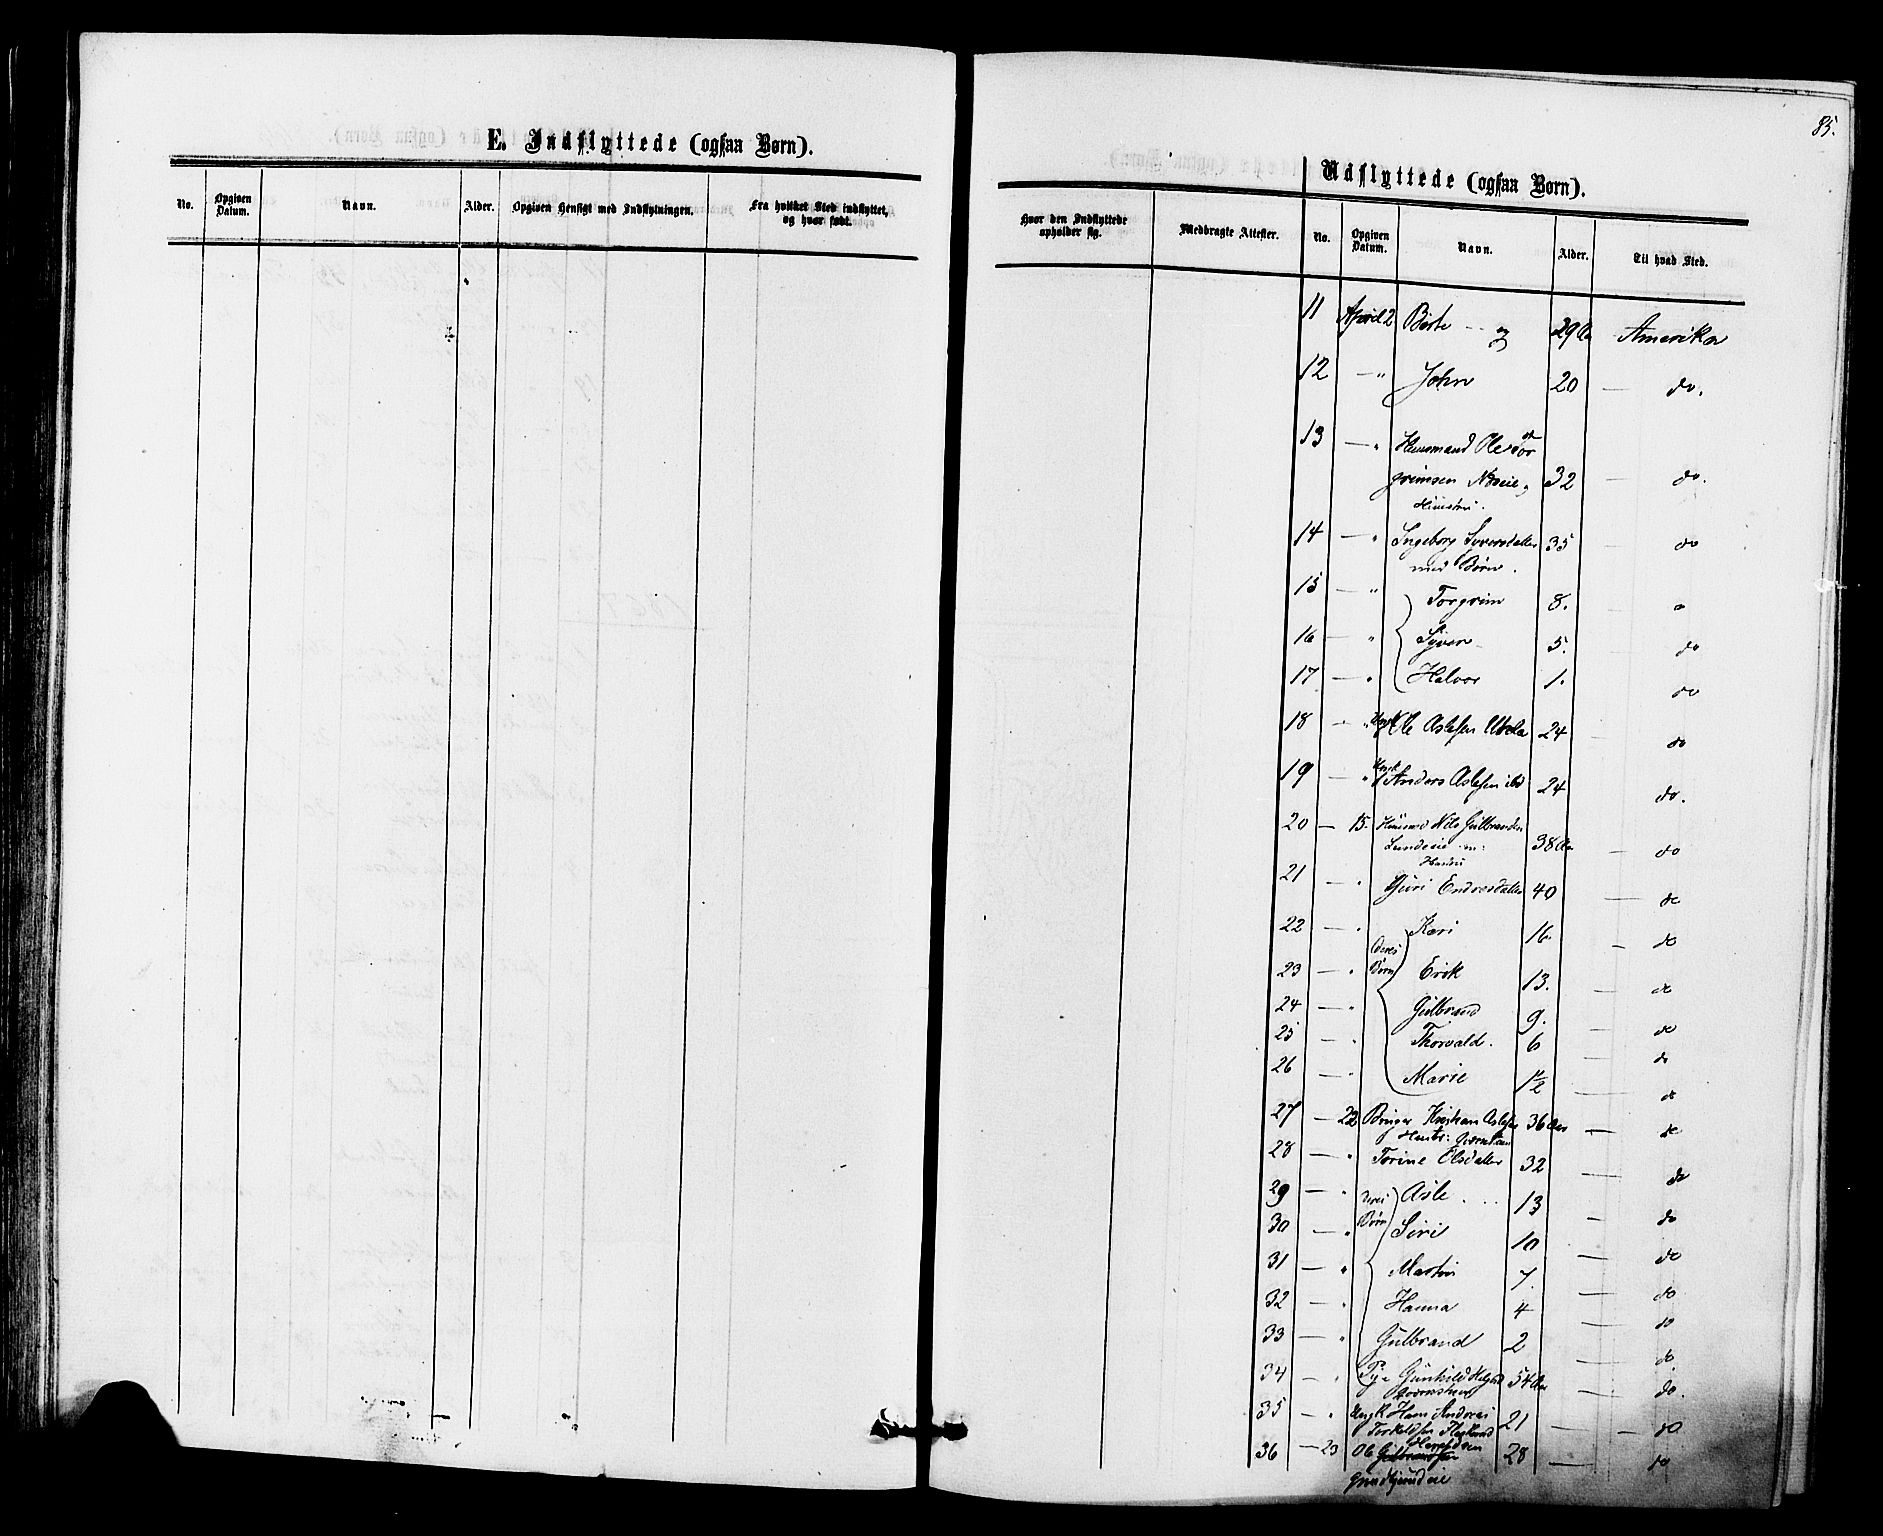 85.
E. Indflyttede (ogsaa Børn).
No. Opgiven Datum. Navn. Alder. Opgiven Hensigt med Indflytningen. Fra hvilket Sted indflyttet, og hvor født.
Udflyttede (ogsaa Børn).
Hvor den Indflyttede opholder sig. Medbragte Attester. No. Opgiven Datum. Navn. Alder. Til hvad Sted.
11 April 2 Birte og 29 Aar Amerika
12 — " John 20 — do.
13 — " Huusmand Ole Tor
grimsen 32 — do.
Huustru.
14 — " Ingeborg Syversdatter 35 — do
med Børn.
15 " Torgrim 8. do
16 — " Syver 5. do
17 — " Halvor 1. do
18 — " Ungk Ole Aslesen 24 do
19 — " Ungk Anders Aslesen ibd 24 do.
20 — 15. Huusmd Nils Gulbrandsen
Lundeeie m: 38 Aar — do
Hustru
21 — " Guri Endresdatter 40 — do
22 — " Kari 16. — do
deres
23 — " Børn Erik 13. — do
24 — " Gulbrand 9. — do
25 — " Thorvald. 6 — do
26 — " Marie 1½ — do
27 — 22 Kristian Aslesen 36 Aar — do
Hustr:
28 — " Torine Olsdatter 32 — do
29 — " deres Asle 13 — do
30 — " Børn Siri 10 — do
31 — " Martin 7. — do
32 — " Hanna 4 — do
33 — " Gulbrand 2 — do
34 — " Pige Gunhild 54 Aar — do.
35 — " Ungk Hans Andreas
Torkeldsen 21 — do
36 — 23 28 — do